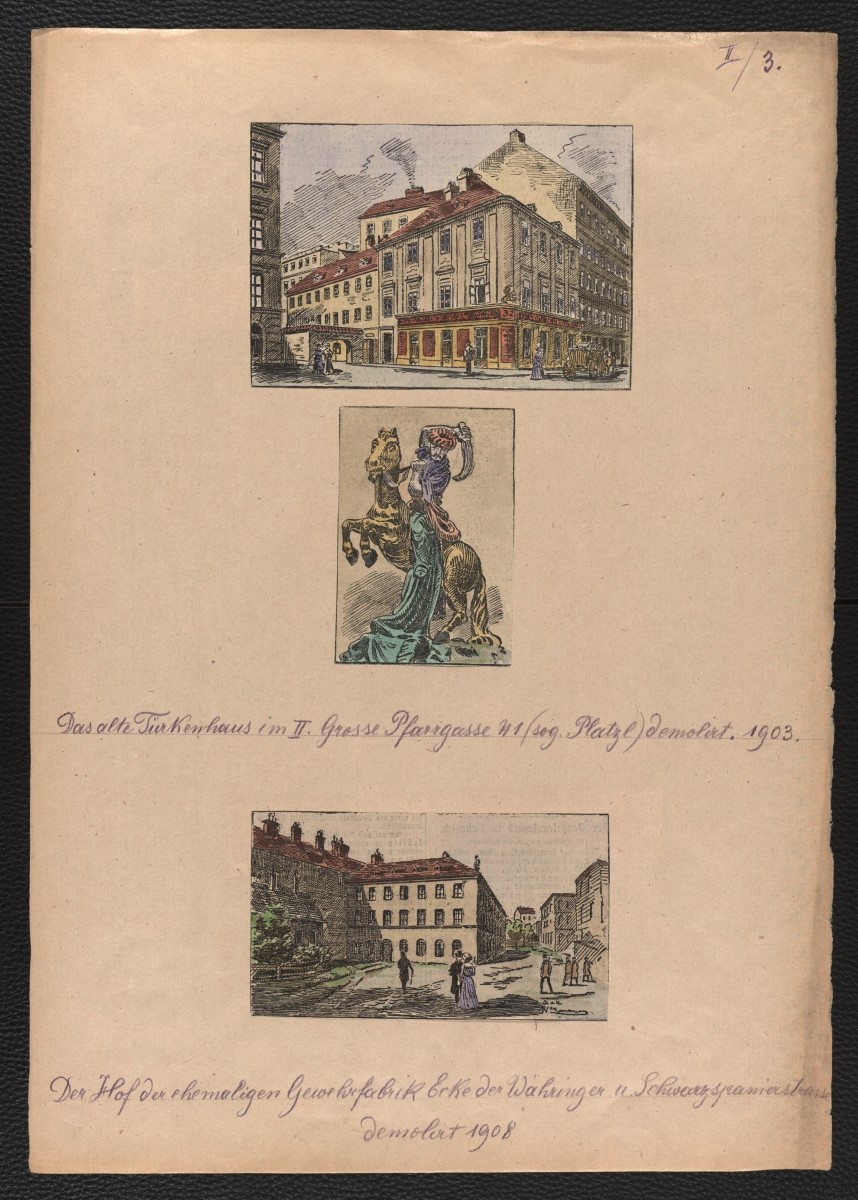 II/3.
Das alte Türkenhaus im II. Grosse Pfarrgasse 41 (sog. Platzl) demolirt. 1903.
Der Hof der ehemaligen Gewehrfabrik Ecke der Währinger u. Schwarzspanierstrasse
demolirt 1908